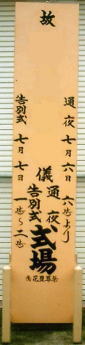 故
通夜 七月六日 六時より
告別式 七月七日 一時〜二時
儀
通夜
告別式
式場